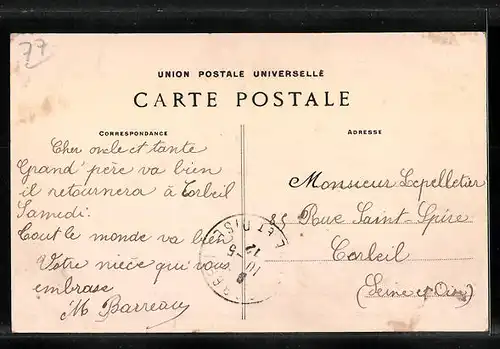 77
UNION POSTALE UNIVERSELLE
CARTE POSTALE
CORRESPONDANCE
Cher oncle et tante
Grand' père va bien
il retournera à Corbeil
Samedi.
Tout le monde va bien
Votre nièce qui vous
embrasse
M Barreau
ADRESSE
Monsieur Lepelletier
58 Rue Saint-Spire
Corbeil
(Seine et Oise)
ET OISE
12 -5
10